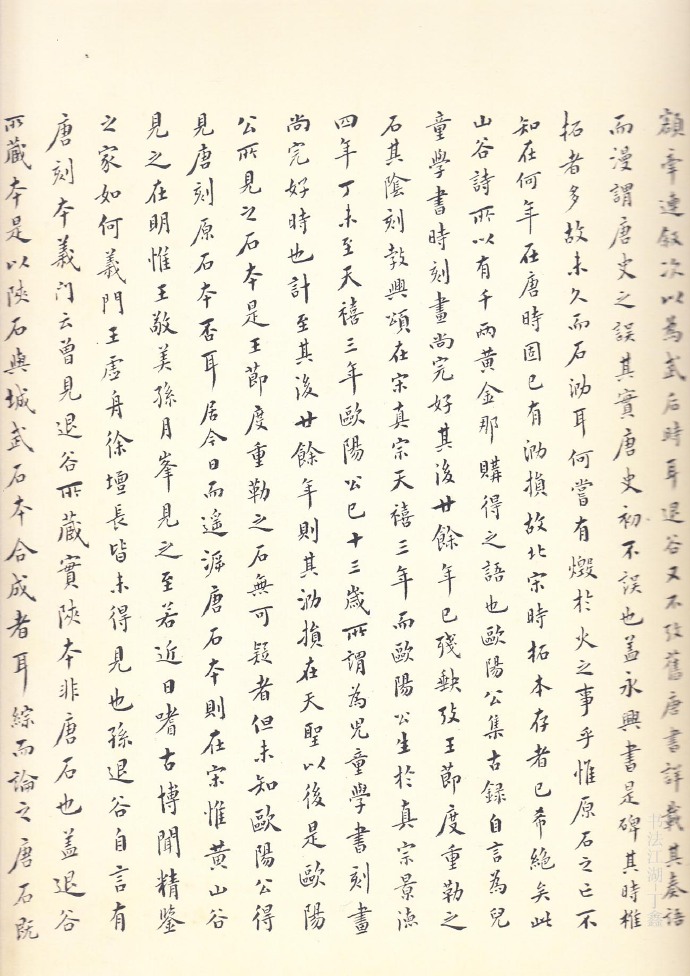 額牽連敘次以為武后時耳退谷又不攷舊唐書詳載其奏語
而漫謂唐史之誤其實唐史初不誤也蓋永興書是碑其時椎
拓者多故未久而石泐耳何嘗有燬於火之事乎惟原石之亡不
知在何年在唐時固已有泐損故北宋時拓本存者已希絕矣此
山谷詩所以有千兩黃金那購得之語也歐陽公集古錄自言為兒
童學書時刻畫尚完好其後廿餘年已殘缺攷王節度重勒之
石其陰刻敦興頌在宋真宗天禧三年而歐陽公生於真宗景德
四年丁未至天禧三年歐陽公已十三歲所謂為兒童學書刻畫
尚完好時也計至其後廿餘年則其泐損在天聖以後是歐陽
公所見之石本是王節度重勒之石無可疑者但未知歐陽公得
見唐刻原石本否耳居今日而遙溯唐石本則在宋惟黃山谷
見之在明惟王敬美孫月峯見之至若近日嗜古博聞精鑒
之家如何義門王虛舟徐壇長皆未得見也孫退谷自言有
唐刻本義门云曾見退谷所藏實陝本非唐石也蓋退谷
所藏本是以陝石與城武石本合成者耳綜而論之唐石既
书法江湖-丁鑫